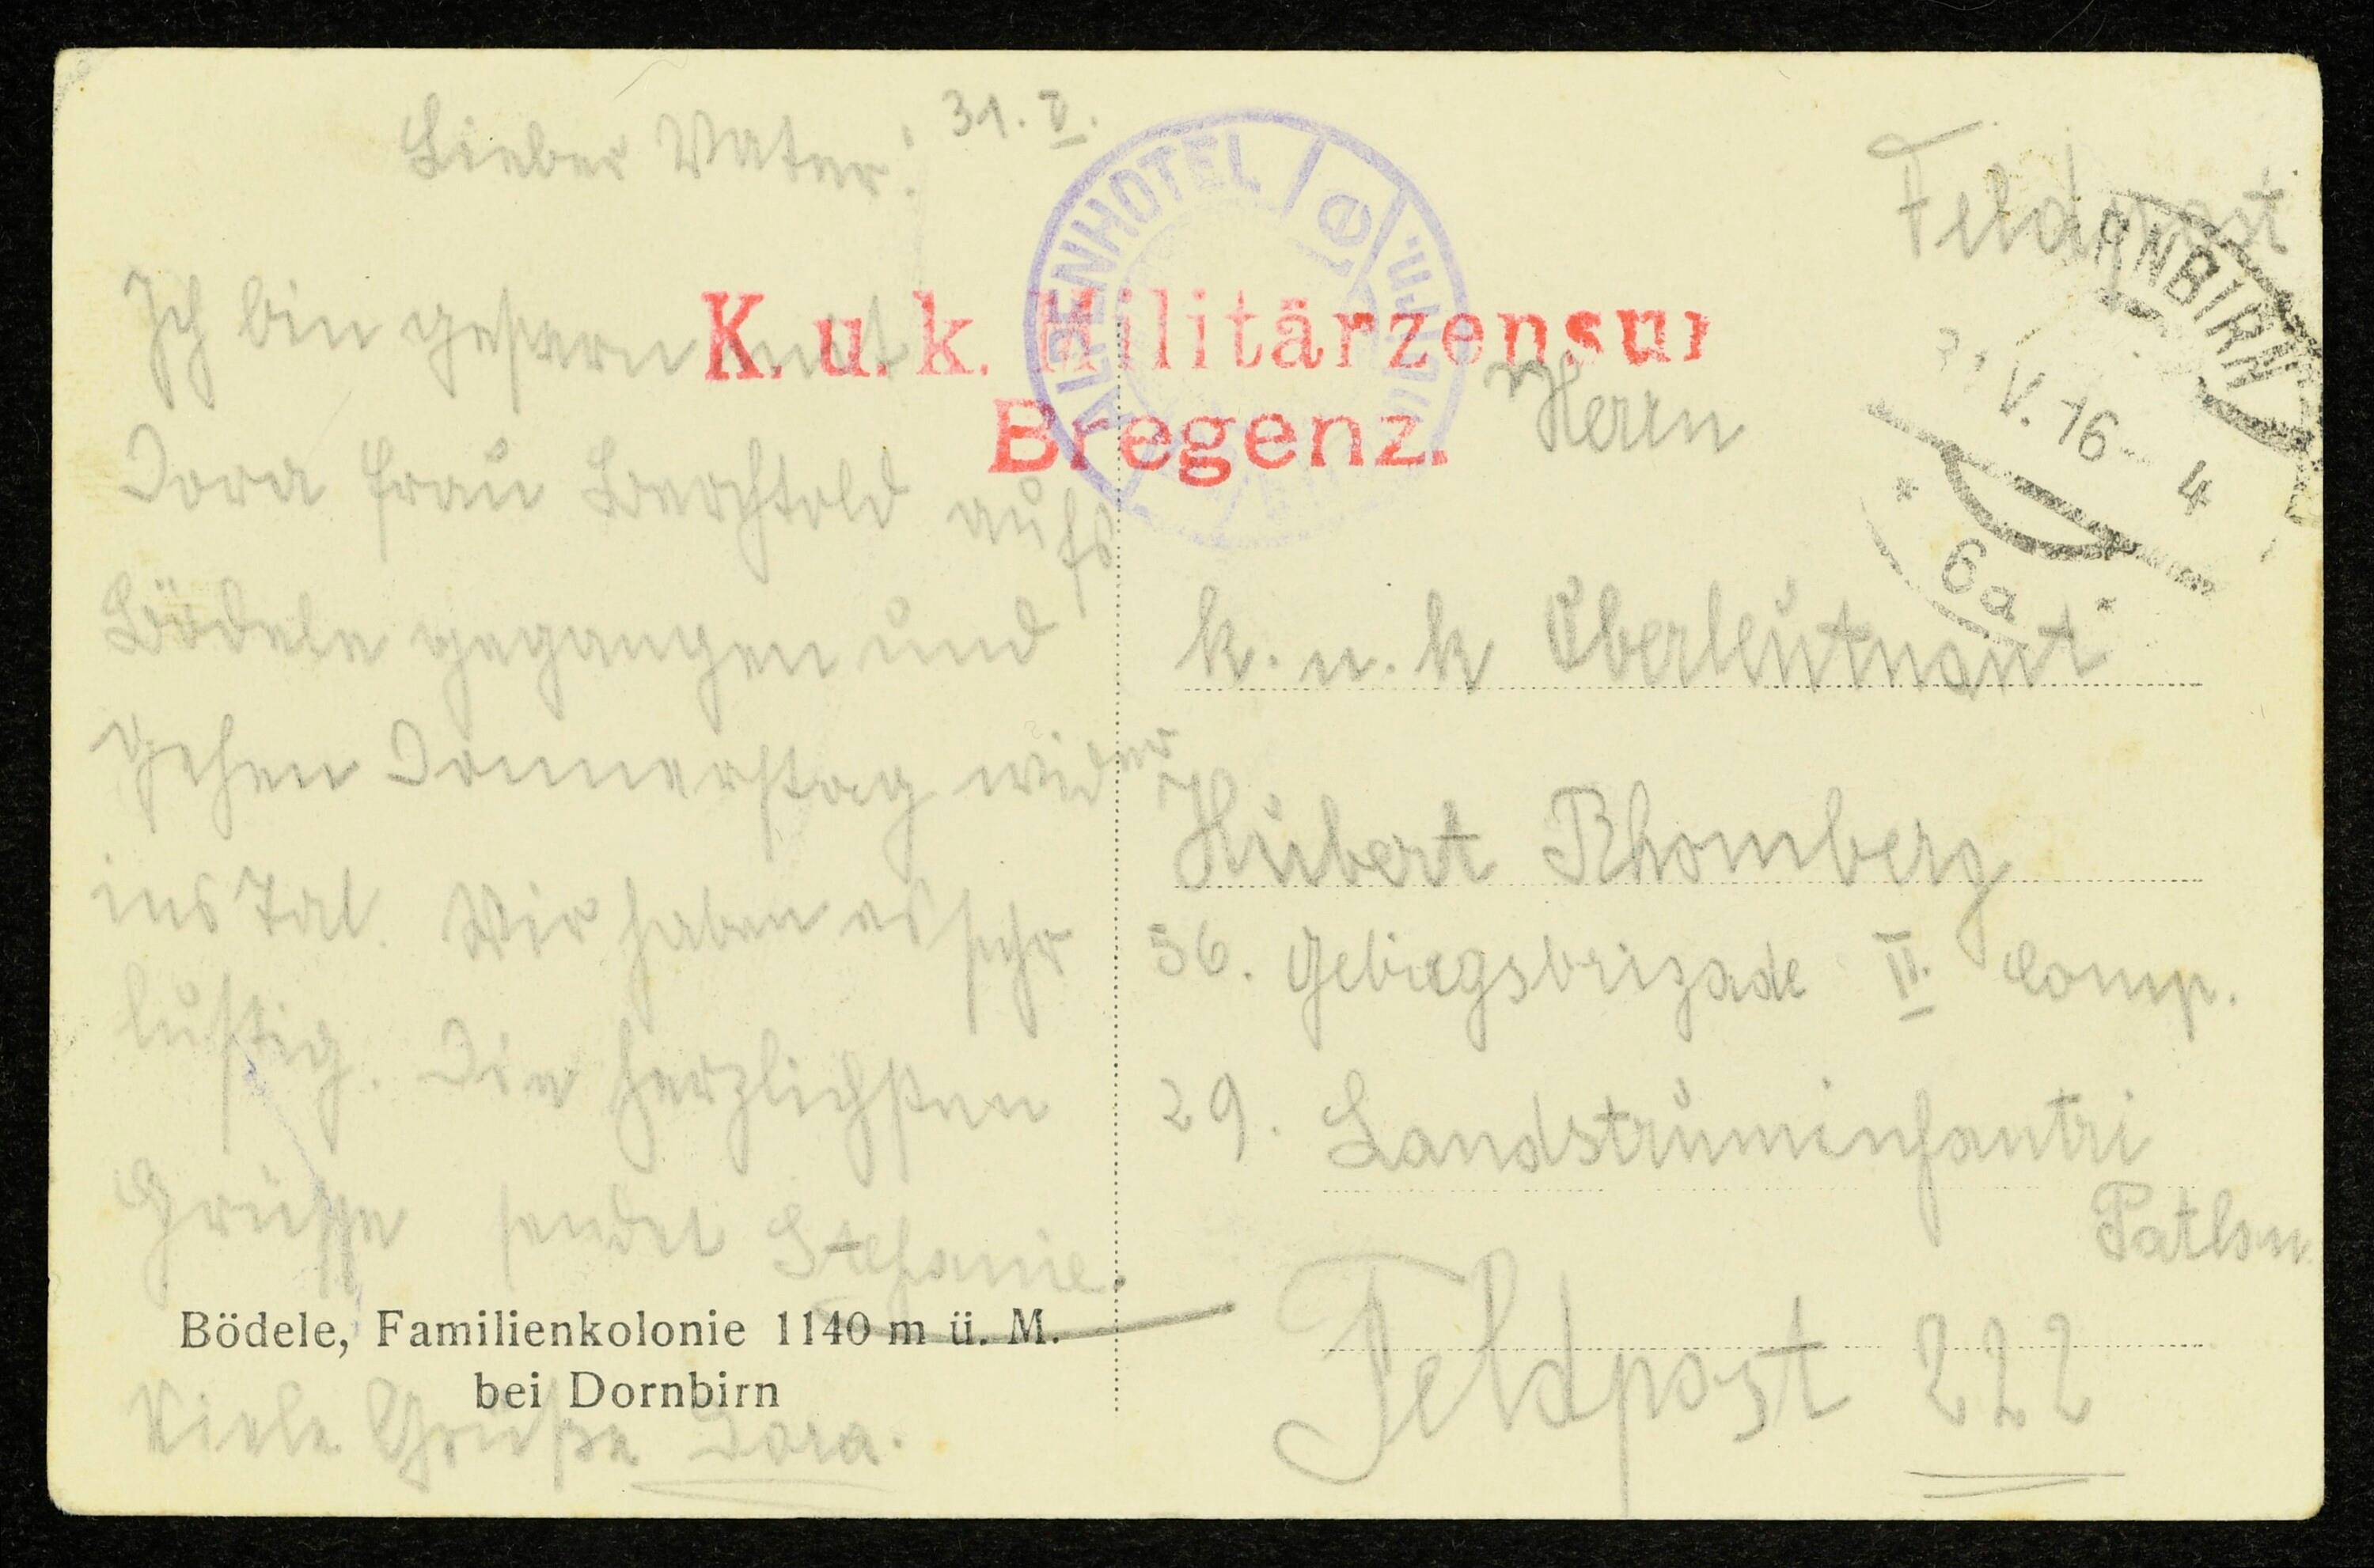 Lieber Vater! 31. V.
Ich bin gestern mit
Dora Frau Berchtold aufs
Bödele gegangen und
gehen Donnerstag wider
ins Tal. Wir haben es sehr
lustig. Die herzlichsten
Grüsse sendet Stefanie.
Bödele, Familienkolonie 1140 m ü. M.
bei Dornbirn
Viele Grüße Dora.
ALPENHOTEL
K. u. k. Militärzensur
Bregenz.
Feldpost
RNBIRN
V. 16 - 4
* 6a *
Herrn
k. u. k Oberleutnant
Hubert Rhomberg
56. Gebirgsbrigade II. Comp.
29. Landstruminfantri
Feldpost 222